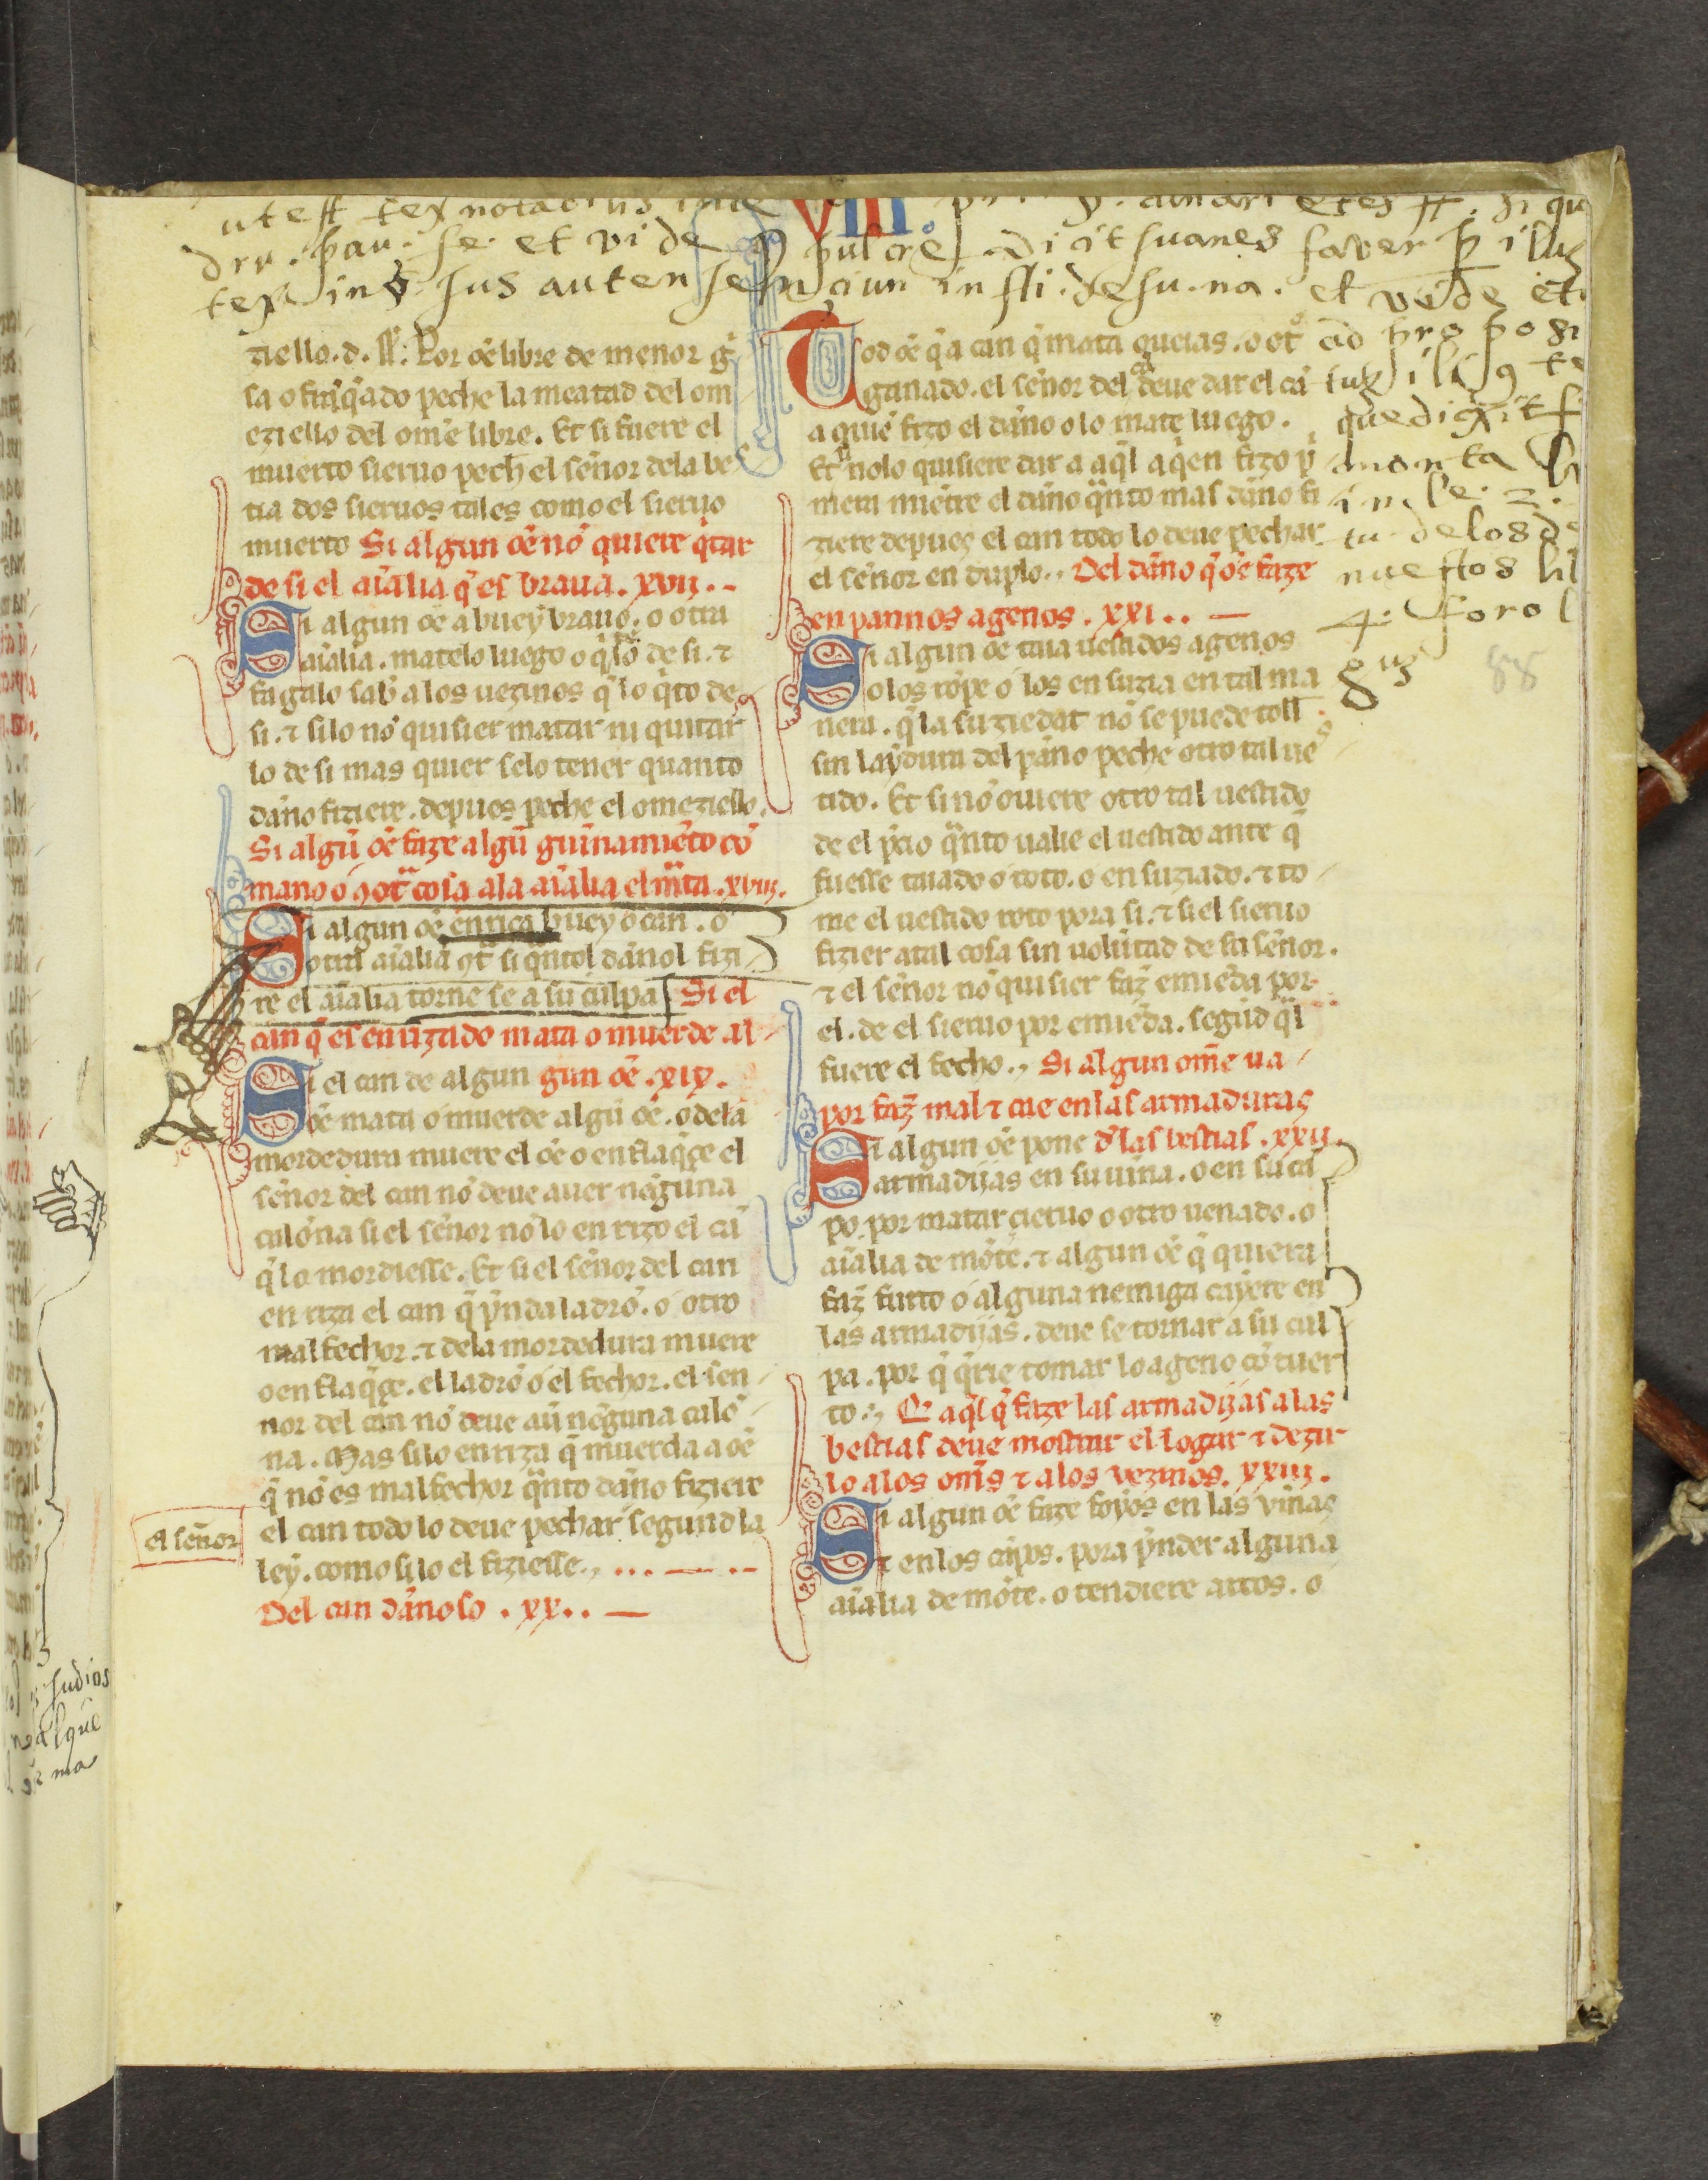 VIII.
tex in § Jus auten
ziello. d. ſſ: Por oē libre de menor gͥ
sa o franq̄ado peche la meatad del om
eziello del omē libre. Et si fuere el
muerto sieruo pech el señor dela bes
tia dos sieruos tales como el sieruo
muerto Si algun oē nō quiere q̇tar
de si el aīalia q̄ es braua. xvij.
Si algun oē a buey brauo. o otra
aīalia. matelo luego o q̇telo de si. ⁊
fagalo sab̄ a los uezinos q̄ lo q̇to de
si. ⁊ si lo nō quisier matar ni quitar
lo de si mas quier selo tener quanto
daño fiziere. depues peche el omeziello.
Si algū oē faze algū guīnamiēto cō
mano o ꝯ ot̄ cosa ala aīalia el mͣta. xviij.
Si algun oē enrica buey o can. o
otra aīalia ꝯt̄ si q̄ntol dañol fizi
re el aīalia torne se a su culpa Si el
can q̄ es enrizado mata o muerde al
Si el can de algun gun oē. xix.
oē mata o muerde algū oē. o dela
mordedura muere el oē o enflaq̄çe el
señor del can nō deue auer nēguna
calōna si el señor nō lo enrizo el cā
q̄ lo mordiesse. Et si el señor del can
enriza el can q̄ p̄nda ladrō. o otro
malfechor. ⁊ dela mordedura muere
o enflaq̄çe. el ladrō o el fechor. el sen
nor del can nō deue aū nēguna calō
na. Mas si lo enriza q̄ muerda a oē
q̄ nō es malfechor q̄nto daño fiziere
el señor
el can todo lo deue pechar segund la
ley. como si lo el fiziesse.
Del can dañoso. xx.
Tod oē q̄ a can q̄ mata oueias. o otͦ
ganado. el señor del cā deue dar el cā
a quiē fizo el daño o lo mate luego.
Et si nolo quisiere dar a aq̄l a q̇en fizo ṗ
mera miētre el daño q̄nto mas daño fi
ziere depues el can todo lo deue pechar
el señor en duplo. Del daño q̄ oē faze
en pannos agenos. xxi.
Si algun oē taia uestidos agenos
o los rōpe o los ensuzia en tal ma
nera. q̄ la suziedat nō se puede toll̄
sin laydura del paño peche otro tal ues
tido. Et si nō ouiere otro tal uestido
de el p̄cio q̄nto ualie el uestido ante q̄
fuesse taiado o roto. o ensuziado. ⁊ to
me el uestido roto pora si. ⁊ si el sieruo
fizier atal cosa sin uolūtad de su señor.
⁊ el señor nō quisier faz̄ emiēda por
el. de el sieruo por emiēda. segūd q̄l
fuere el fecho. Si algun om̄e ua
por faz̄ mal ⁊ cae en las armaduras
Si algun oē pone d̄ las bestias. xxij.
armadijas en su uiña. o en su cā
po. por matar cieruo o otro uenado. o
aīalia de mōte. ⁊ algun oē q̄ quiera
faz̄ furto o alguna nemiga cayere en
las armadijas. deue se tornar a su cul
pa. por q̄ q̄rie tomar lo ageno cō tuer
to. E aq̄l q̄ faze las armadijas a las
bestias deue mostrar el logar ⁊ dezir
lo a los om̄s ⁊ a los vezinos. xxiij.
Si algun oē faze foyos en las viñas
⁊ en los cāpos. pora p̄nder alguna
aīalia de mōte. o tendiere arcos. o
ad proposi
que dixit
in le. 2.
tu. delos de
nuestos lib
4. foro l
88
judios